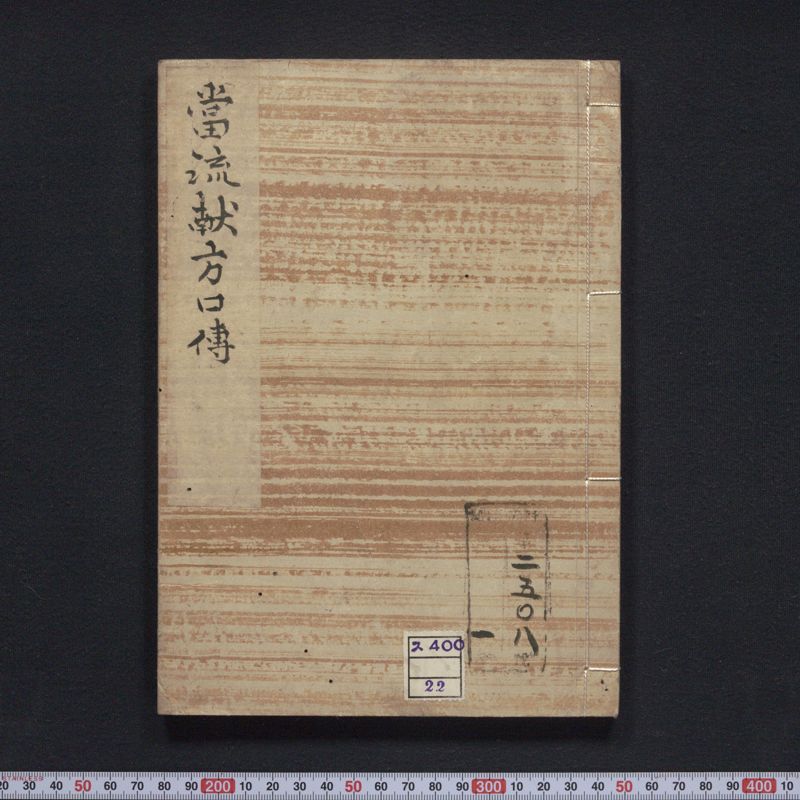 當流献方口傳
二五〇八
一
ス400
22
STAINLESS
20 30 40 50 60 70 80 90 200 10 20 30 40 50 60 70 80 90 300 10 20 30 40 50 60 70 80 90 400 10